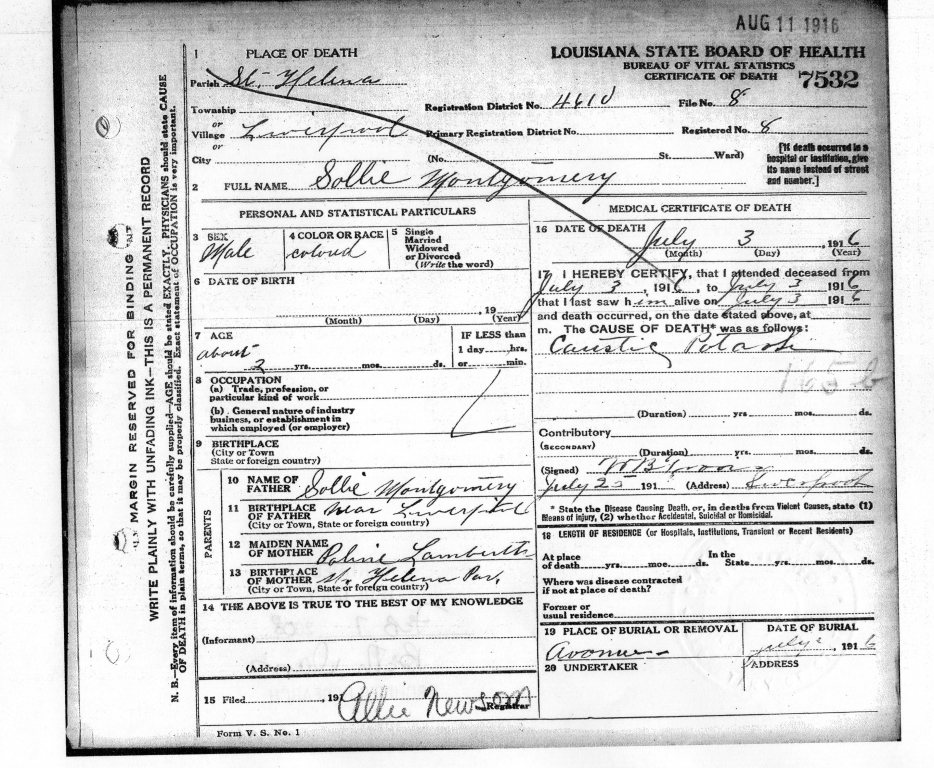 AUG 11 1916
1 PLACE OF DEATH
LOUISIANA STATE BOARD OF HEALTH
BUREAU OF VITAL STATISTICS
CERTIFICATE OF DEATH 7532
Parish St. Helena
Township
or
Village Liverpool
or
City
Registration District No. 4610 File No. 8
Primary Registration District No. Registered No. 8
(No. St. Ward)
[If death occurred in a hospital or institution, give its name instead of street and number.]
2 FULL NAME Sollie Montgomery
PERSONAL AND STATISTICAL PARTICULARS
3 SEX Male
4 COLOR OR RACE colored
5 Single
Married
Widowed
or Divorced
(Write the word)
6 DATE OF BIRTH
, 19
(Month) (Day) (Year)
7 AGE
about
2 yrs. mos. ds.
IF LESS than
1 day hrs.
or min.
8 OCCUPATION
(a) Trade, profession, or
particular kind of work
(b) General nature of industry
business, or establishment in
which employed (or employer)
9 BIRTHPLACE
(City or Town
State or foreign country)
PARENTS
10 NAME OF
FATHER Sollie Montgomery
11 BIRTHPLACE
OF FATHER near Liverpool
(City or Town, State or foreign country)
12 MAIDEN NAME
OF MOTHER Poline Lamberth
13 BIRTHPLACE
OF MOTHER St. Helena Par.
(City or Town, State or foreign country)
14 THE ABOVE IS TRUE TO THE BEST OF MY KNOWLEDGE
(Informant)
(Address)
15 Filed , 191 Allie Newsom
Registrar
Form V. S. No. 1
MEDICAL CERTIFICATE OF DEATH
16 DATE OF DEATH
July 3 , 1916
(Month) (Day) (Year)
17 I HEREBY CERTIFY, that I attended deceased from
July 3, 1916, to July 3 1916
that I last saw him alive on July 3 1916
and death occurred, on the date stated above, at
m. The CAUSE OF DEATH* was as follows:
Caustic Potash
165 b
(Duration) yrs mos. ds.
Contributory
(SECONDARY)
(Duration) yrs mos. ds.
(Signed) W B
July 23 191 (Address) Liverpool
* State the Disease Causing Death, or, in deaths from Violent Causes, state (1)
Means of injury, (2) whether Accidental, Suicidal or Homicidal.
18 LENGTH OF RESIDENCE (or Hospitals, Institutions, Transient or Recent Residents)
At place
of death yrs. mos. ds.
In the
State yrs. mos. ds.
Where was disease contracted
if not at place of death?
Former or
usual residence
19 PLACE OF BURIAL OR REMOVAL
DATE OF BURIAL
July 1916
20 UNDERTAKER
ADDRESS
MARGIN RESERVED FOR BINDING
WRITE PLAINLY WITH UNFADING INK—THIS IS A PERMANENT RECORD
N. B.—Every item of information should be carefully supplied—AGE should be stated EXACTLY. PHYSICIANS should state CAUSE
OF DEATH in plain terms, so that it may be properly classified. Exact statement of OCCUPATION is very important.